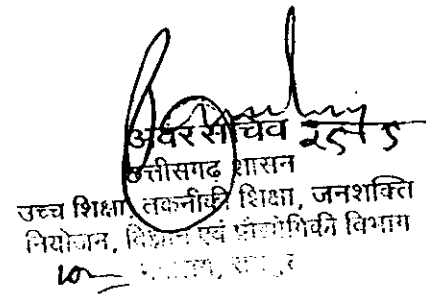 अवर सचिव
छत्तीसगढ़ शासन
उच्च शिक्षा, तकनीकी शिक्षा, जनशक्ति
नियोजन, विज्ञान एवं प्रौद्योगिकी विभाग